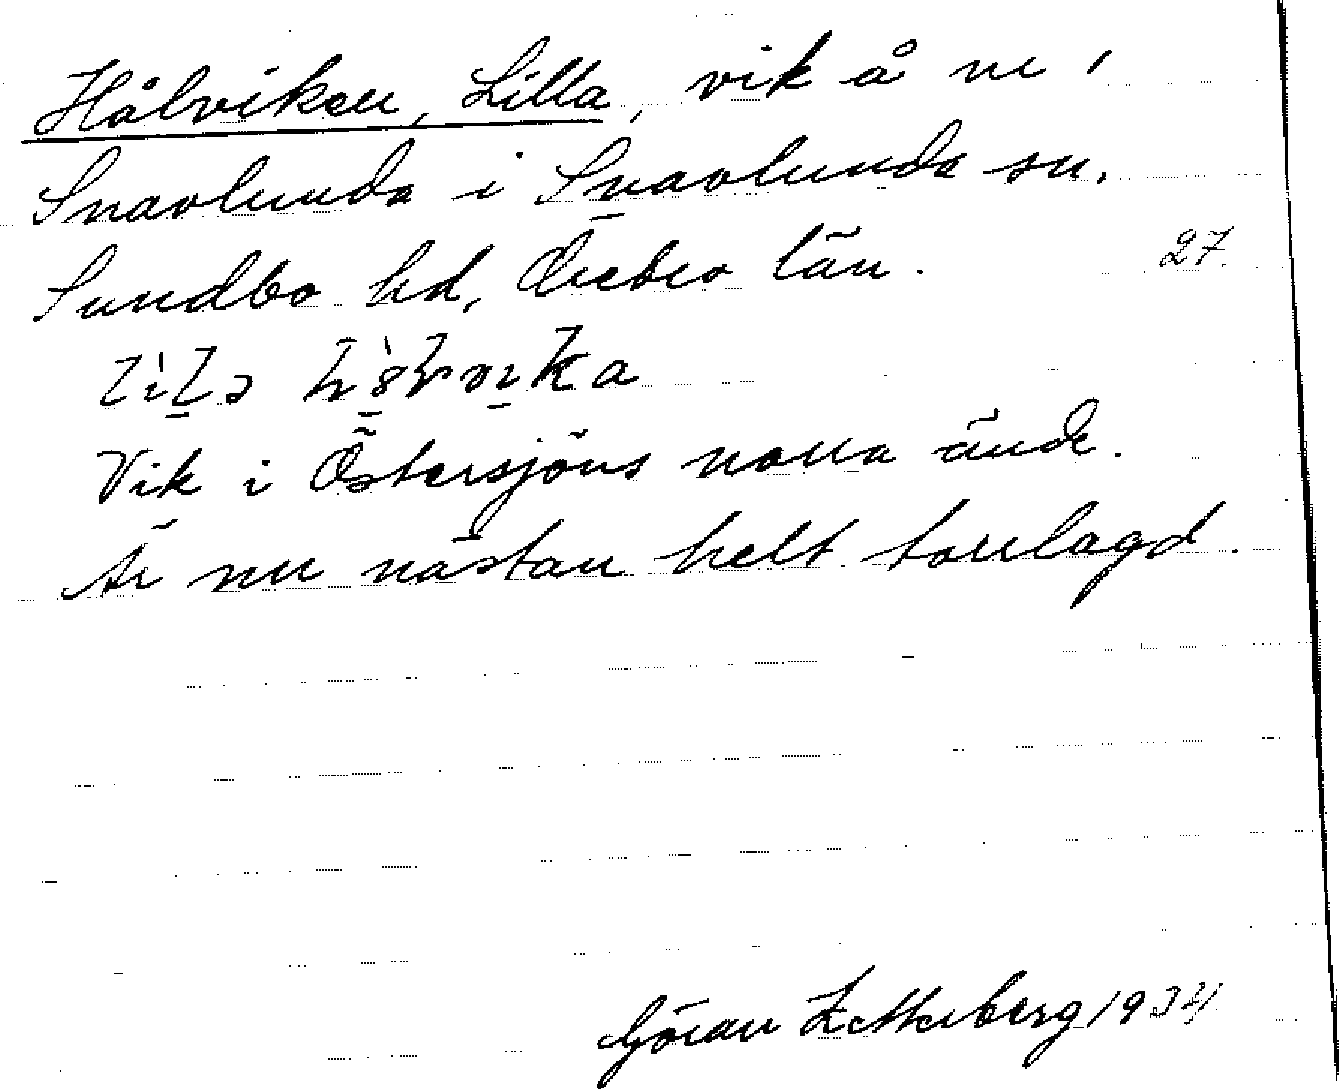 Hålviken, Lilla, vik å nr 1
Snavlunda i Snavlunda sn,
Sundbo hd, Örebro län. 27
Vik i Östersjöns norra ände.
Är nu nästan helt torrlagd.
Göran Zetterberg 1934